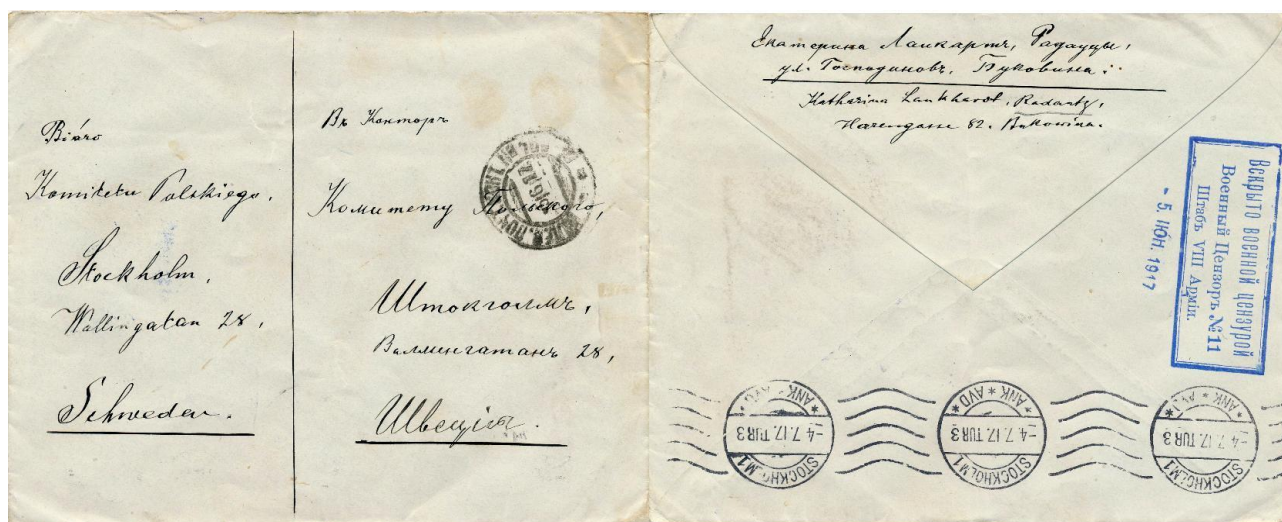 Biuro
Komitetu Polskiego,
Stockholm,
Wallingatan 28,
Schweden.
Въ Конторъ
Комитету Польского,
Штокголмъ,
Валлингатанъ 28,
Швеція.
Екатерина Лаукартъ, Радауцы,
ул. Господиновъ, Буковина.
Katharina Laukhardt, Radautz,
Herrengasse 82. Bukowina.
Вскрыто военной цензурой
Военный Цензоръ № 11
Штабъ VIII Арміи.
- 5. ІЮН. 1917
STOCKHOLM 1
-4.7.17. TUR 3
* ANK * AVD *
STOCKHOLM 1
-4.7.17. TUR 3
* ANK * AVD *
STOCKHOLM 1
-4.7.17. TUR 3
* ANK * AVD *